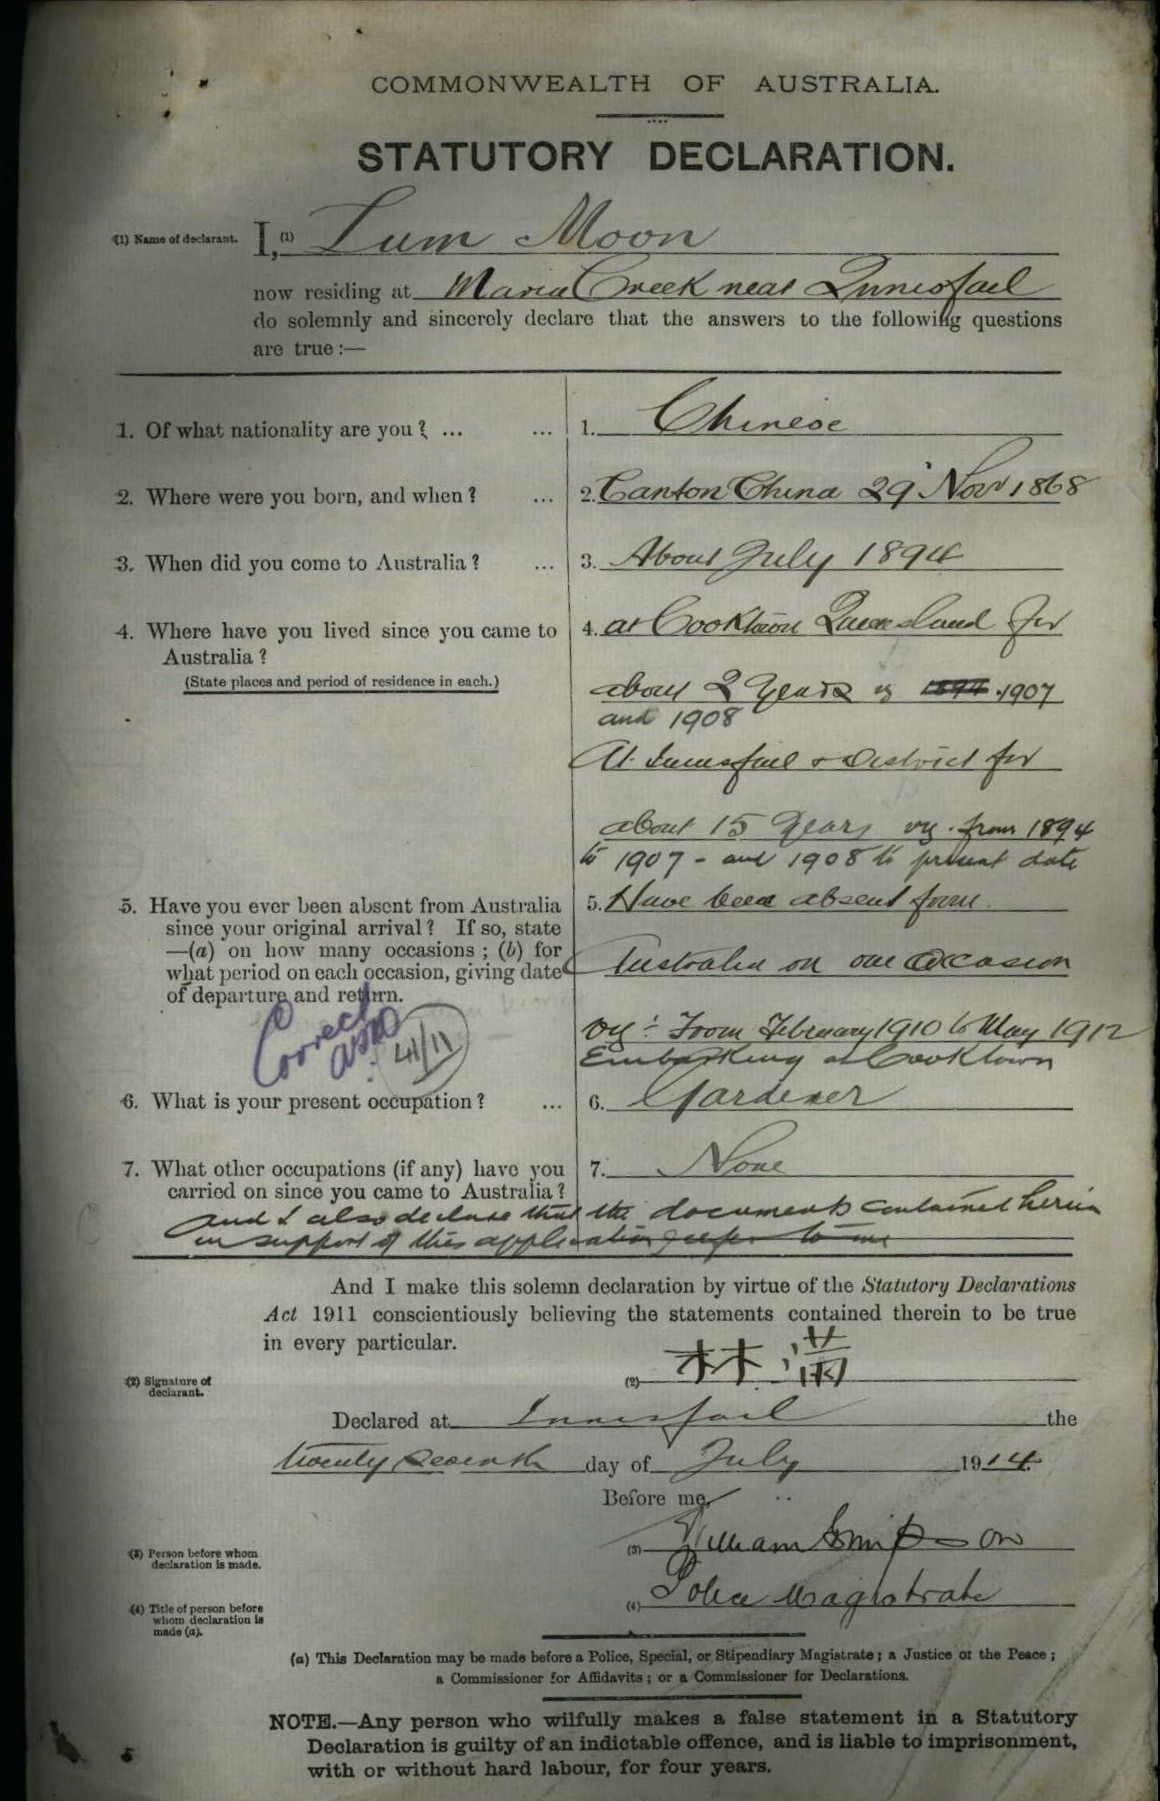 COMMONWEALTH OF AUSTRALIA.
STATUTORY DECLARATION.
(1) Name of declarant. I, (1) Lum Moon
now residing at Maria Creek near Innisfail
do solemnly and sincerely declare that the answers to the following questions
are true:—
1. Of what nationality are you? ... ... 1. Chinese
2. Where were you born, and when? ... 2. Canton China 29 Nov 1868
3. When did you come to Australia? ... 3. About July 1894
4. Where have you lived since you came to 4. at Cooktown Queensland for
Australia?
(State places and period of residence in each.)
about 2 Years vz 1894 1907
and 1908
At Innisfail & District for
about 15 Years vz. from 1894
to 1907 - and 1908 to present date
5. Have you ever been absent from Australia 5. Have been absent from
since your original arrival? If so, state
—(a) on how many occasions; (b) for
what period on each occasion, giving date Australia on one Occasion
of departure and return.
Correct
41/11
vz: From February 1910 to May 1912
Embarking at Cooktown
6. What is your present occupation? ... 6. Gardener
7. What other occupations (if any) have you 7. None
carried on since you came to Australia?
and I also declare that the documents contained herein
in support of this application refer to me
And I make this solemn declaration by virtue of the Statutory Declarations
Act 1911 conscientiously believing the statements contained therein to be true
in every particular.
(2) Signature of
declarant.
(2) 林满
Declared at Innisfail the
twenty seventh day of July 1914
Before me,
(3) Person before whom
declaration is made.
(3) William Simpson
(4) Title of person before
whom declaration is
made (a).
(4) Police Magistrate
(a) This Declaration may be made before a Police, Special, or Stipendiary Magistrate; a Justice of the Peace;
a Commissioner for Affidavits; or a Commissioner for Declarations.
NOTE.—Any person who wilfully makes a false statement in a Statutory
Declaration is guilty of an indictable offence, and is liable to imprisonment,
with or without hard labour, for four years.